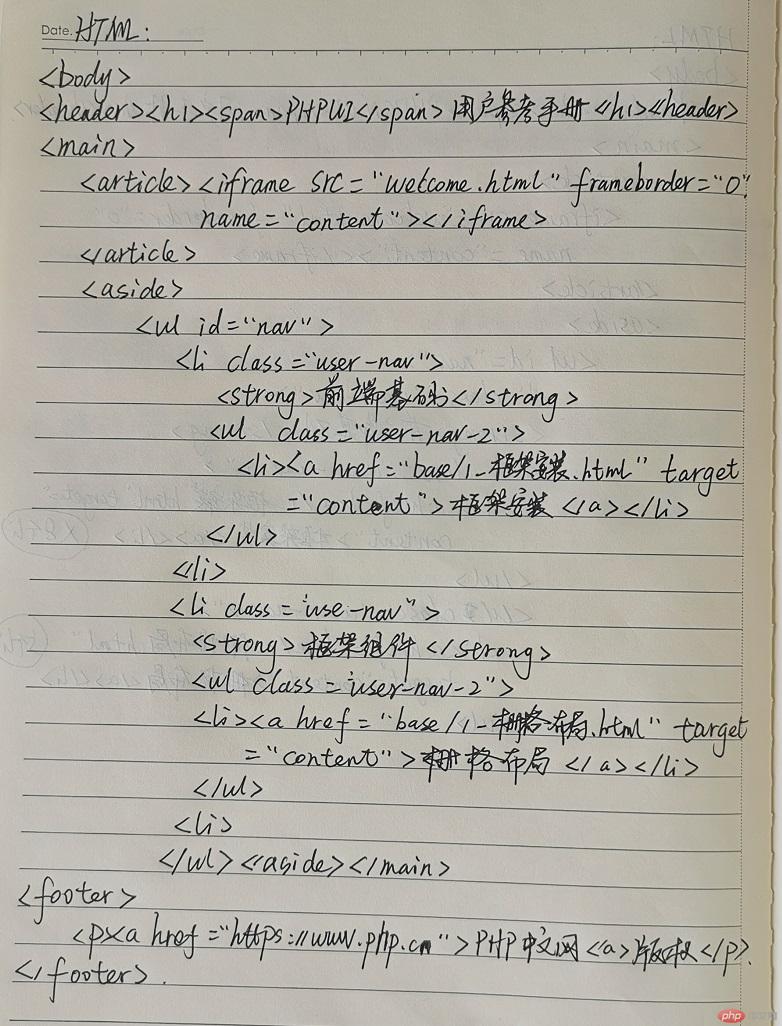 Date. HTML:
<body>
<header><h1><span>PHPUI</span>用户参考手册</h1></header>
<main>
<article><iframe src="welcome.html" frameborder="0"
name="content"></iframe>
</article>
<aside>
<ul id="nav">
<li class="user-nav">
<strong>前端基础</strong>
<ul class="user-nav-2">
<li><a href="base/1-框架安装.html" target
="content">框架安装</a></li>
</ul>
</li>
<li class="use-nav">
<strong>框架组件</strong>
<ul class="user-nav-2">
<li><a href="base/1-栅格布局.html" target
="content">栅格布局</a></li>
</ul>
<li>
</ul></aside></main>
<footer>
<p><a href="https://www.php.cn">PHP中文网<a>版权</p>.
</footer>.
php